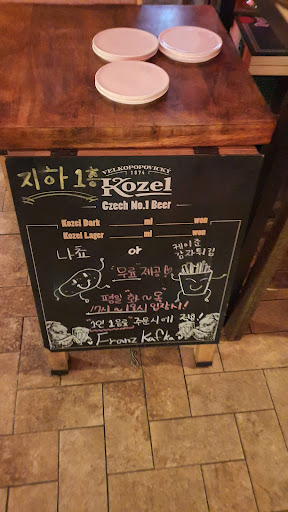 지하 1층
VELKOPOPOVICKÝ
1874
Kozel
Czech No.1 Beer
Kozel Dark ml won
Kozel Lager ml won
나쵸 or 케이준 감자튀김
무료 제공!!
평일 "화~목"
17시~19시 입장시!
"1인 1음료" 주문시에 적용!
Franz Kafka